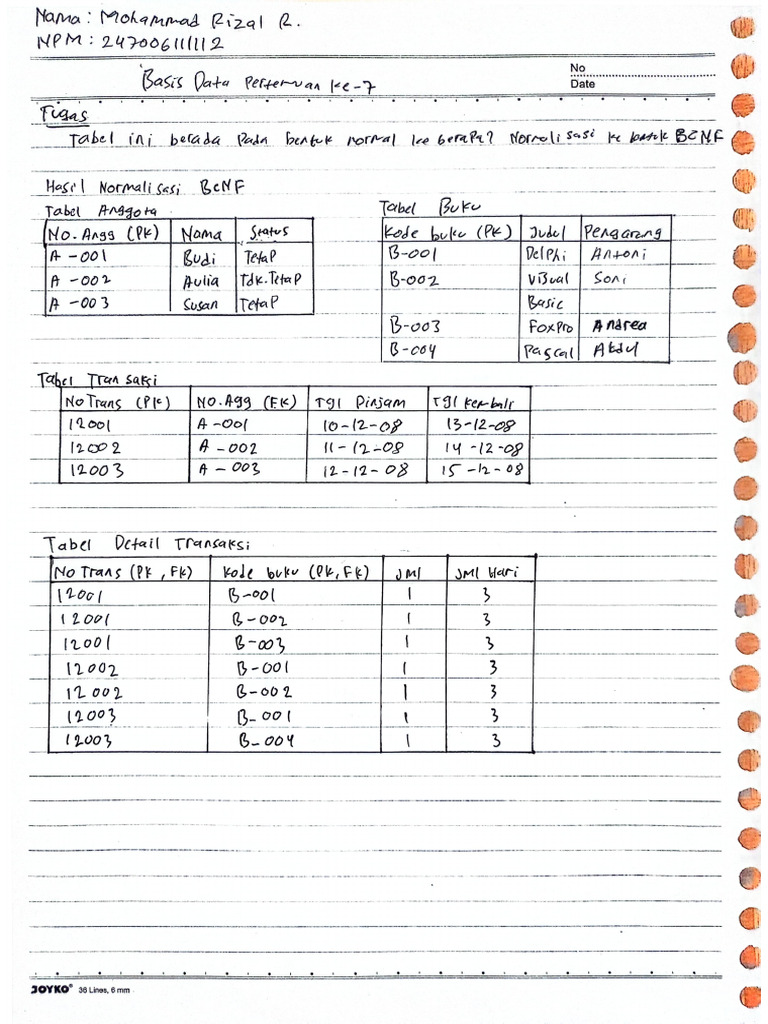 Nama : Mohammad Rizal R.
NPM : 247006111112
No
Date
Basis Data Pertemuan ke-7
Tugas
Tabel ini berada pada bentuk normal ke berapa? Normalisasi ke bentuk BCNF
Hasil Normalisasi BCNF
Tabel Anggota
No. Angg (PK) Nama Status
A - 001 Budi Tetap
A - 002 Aulia Tdk. Tetap
A - 003 Susan Tetap
Tabel Buku
Kode buku (PK) Judul Pengarang
B-001 Delphi Antoni
B-002 Visual Soni
Basic
B-003 FoxPro Andrea
B-004 Pascal Abdul
Tabel Transaksi
No Trans (PK) No. Agg (FK) Tgl Pinjam Tgl Kembali
12001 A - 001 10-12-08 13-12-08
12002 A - 002 11-12-08 14-12-08
12003 A - 003 12-12-08 15-12-08
Tabel Detail Transaksi
No Trans (PK, FK) Kode buku (PK, FK) Jml Jml Hari
12001 B-001 1 3
12001 B-002 1 3
12001 B-003 1 3
12002 B-001 1 3
12002 B-002 1 3
12003 B-001 1 3
12003 B-004 1 3
JOYKO® 36 Lines, 6 mm